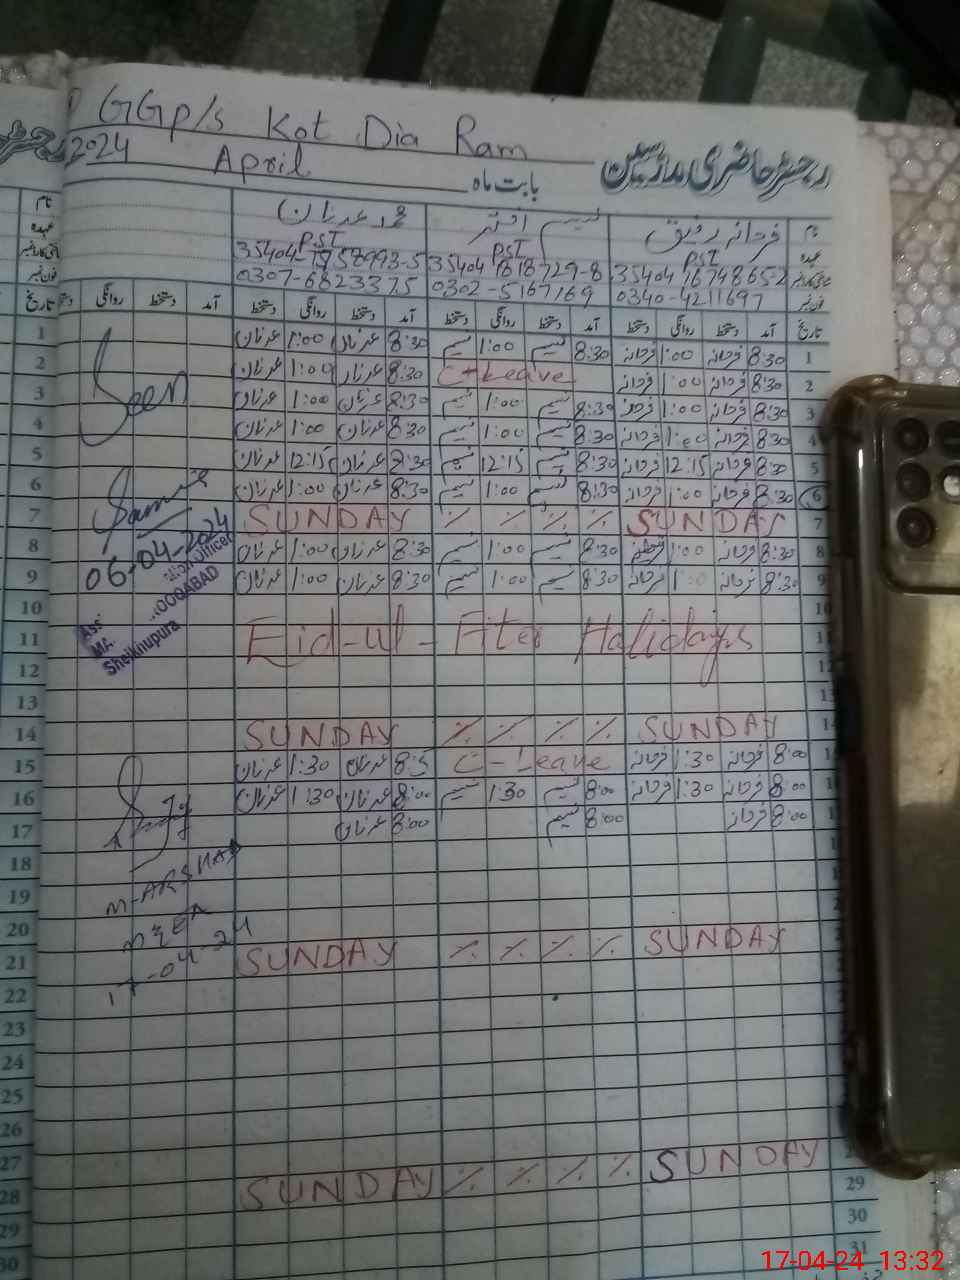 GGp/s Kot Dia Ram
رجسٹر حاضری مدرسین
2024 April بابت ماہ
نام فرحانہ رفیق نسیم اختر محمد عدنان
عہدہ PST PST PST
35404 1674865-2 35404 1818729-8
فون نمبر 0340-4211697 0302-5167169 0307-6823375
تاریخ آمد دستخط روانگی دستخط آمد دستخط روانگی دستخط آمد دستخط روانگی دستخط آمد دستخط روانگی دستخط
1 8:30 فرحانہ 1:00 فرحانہ 8:30 نسیم 1:00 نسیم 8:30 عدنان 1:00 عدنان 1
2 8:30 فرحانہ 1:00 فرحانہ C-Leave 8:30 عدنان 1:00 عدنان 2
3 8:30 فرحانہ 1:00 فرحانہ 8:30 نسیم 1:00 نسیم 8:30 عدنان 1:00 عدنان 3
4 8:30 فرحانہ 1:00 فرحانہ 8:30 نسیم 1:00 نسیم 8:30 عدنان 1:00 عدنان 4
5 8:30 فرحانہ 12:15 فرحانہ 8:30 نسیم 12:15 نسیم 8:30 عدنان 12:15 عدنان 5
6 8:30 فرحانہ 1:00 فرحانہ 8:30 نسیم 1:00 نسیم 8:30 عدنان 1:00 عدنان 6
7 SUNDAY ٪ ٪ ٪ ٪ SUNDAY 7
8 8:30 فرحانہ 1:00 فرحانہ 8:30 نسیم 1:00 نسیم 8:30 عدنان 1:00 عدنان 8
9 8:30 فرحانہ 1:00 فرحانہ 8:30 نسیم 1:00 نسیم 8:30 عدنان 1:00 عدنان 9
10 10
11 Eid-ul-Fiter Halidays 11
12 12
13 13
14 SUNDAY ٪ ٪ ٪ ٪ SUNDAY 14
15 8:00 فرحانہ 1:30 فرحانہ C-Leave 8:5 عدنان 1:30 عدنان 15
16 8:00 فرحانہ 1:30 فرحانہ 8:00 نسیم 1:30 نسیم 8:00 عدنان 1:30 عدنان 16
17 8:00 فرحانہ 8:00 نسیم 8:00 عدنان
18
19
20
21 SUNDAY ٪ ٪ ٪ ٪ SUNDAY
22
23
24
25
26
27
28 SUNDAY ٪ ٪ ٪ ٪ SUNDAY
29 29
30 30
31
Seen
06-04-2024
Officer
Sheikhupura
M-ARSHAD
MEA
17-04-24
17-04-24 13:32